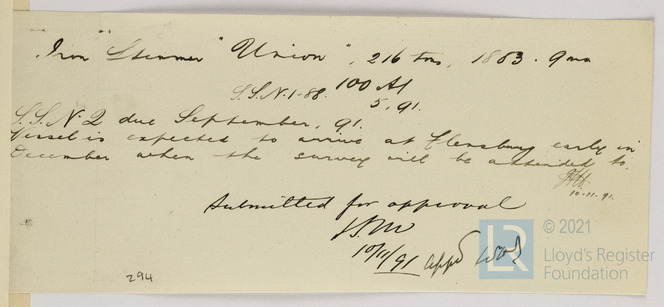 Iron Steamer "Union", 216 tons, 1883. 9 ma
S.S.N.1-88. 100 A1
5, 91.
S.S.N.2 due September, 91.
Vessel is expected to arrive at Flensburg early in
December when the survey will be attended to.
10-11-91.
Submitted for approval
10/11/91 appd
294
© 2021
LR
Lloyd's Register
Foundation